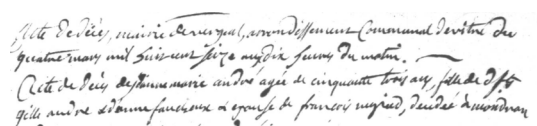 acte de décès, mairie de vergeal, arrondissement Communal de vitré du
quatre mars mil huit cent seize aux dix heures du matin.
Acte de décès de jeanne marie andré agée de cinquante trois ans, fille de dft
gille andré & de anne faucheux & epouse de francois, décédée à